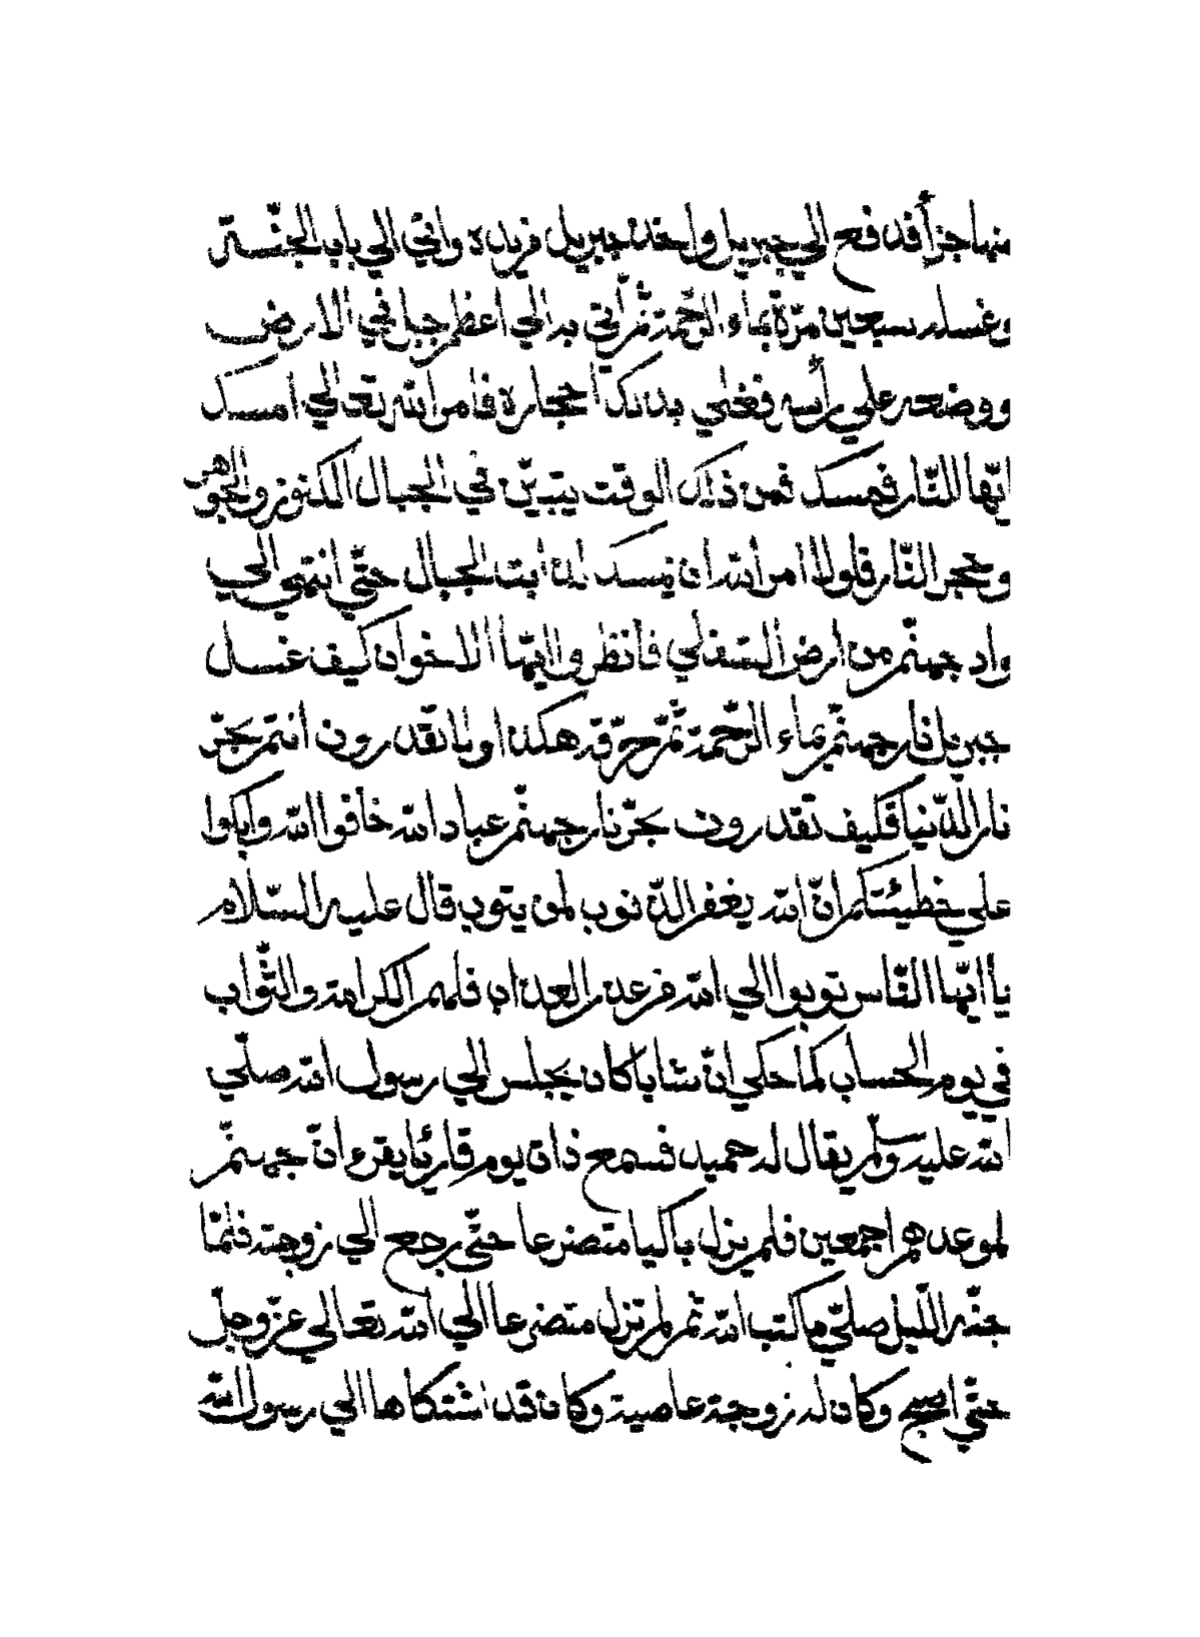 منها جزأ قد فح الي جبريل واخذ جبريل فريده واتي الي باب الجنّة
وغسله سبعين مرّة بماء الرّحمة ثمّ أتي به الي اعظم جبل في الارض
ووضعه علي رأسه فغلي بذلك احجاره فامر الله تعالي امسك
ايّها النّار فمسك فمن ذلك الوقت يتبيّن في الجبال الكنوز والجواهر
وحجر النّار فلولا امر الله ان يمسك لذابت الجبال حتّي انتهي الي
واد جهنّم من ارض السّفلي فانظروا ايّها الاخوان كيف غسل
جبريل نار جهنّم بماء الرّحمة ثمّ حرّقه هكذا اولا تقدرون انتم بحرّ
نار الدّنيا فكيف تقدرون بحرّ نار جهنّم عباد الله خافوا الله وابكوا
علي خطيئتكم انّ الله يغفر الذّنوب لمن يتوب قال عليه السّلام
يا ايّها النّاس توبوا الي الله من عذر العذاب فلهم الكرامة والثّواب
في يوم الحساب كما حكي انّ شابا كان يجلس الي رسول الله صلّي
الله عليه وسلّم يقال له حميد فسمع ذات يوم قارئا يقرء انّ جهنّم
لموعدهم اجمعين فلم يزل باكيا متضرعا حتّي رجع الي زوجته فلمّا
جنّه اللّيل صلّي ما كتب الله ثم لم تزل متضرعا الي الله تعالي عزّ وجلّ
حتّي اصبح وكان له زوجة عاصية وكان قد اشتكاها الي رسول الله